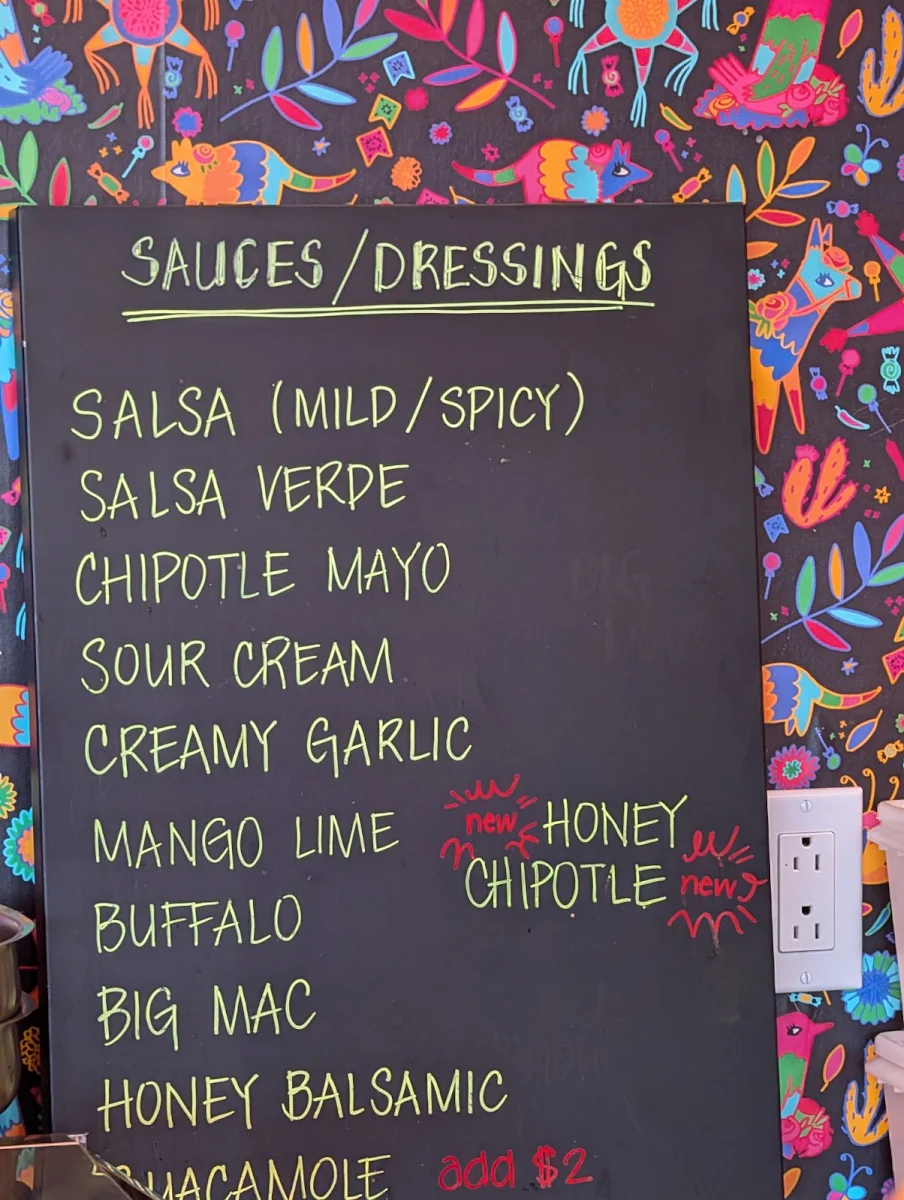 SAUCES/DRESSINGS
SALSA (MILD/SPICY)
SALSA VERDE
CHIPOTLE MAYO
SOUR CREAM
CREAMY GARLIC
MANGO LIME
new HONEY
CHIPOTLE new
BUFFALO
BIG MAC
HONEY BALSAMIC
GUACAMOLE add $2